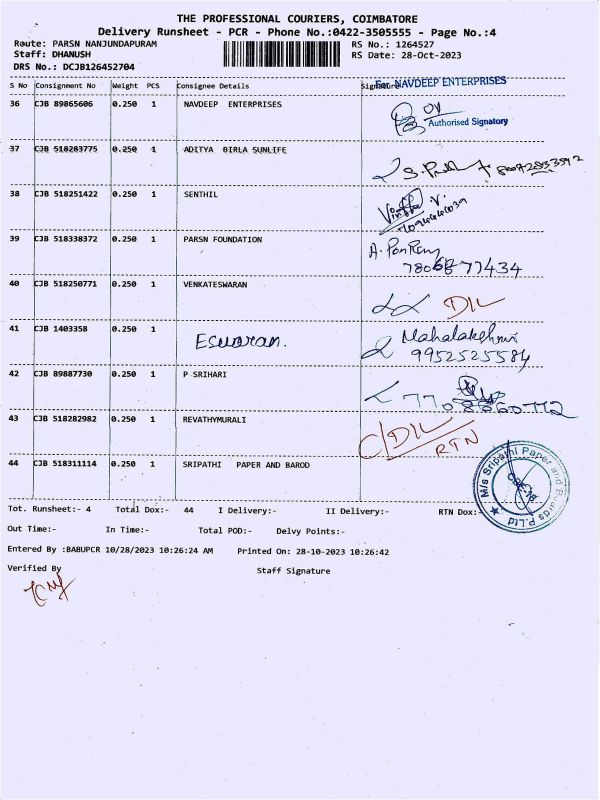 THE PROFESSIONAL COURIERS, COIMBATORE
Delivery Runsheet - PCR - Phone No.:0422-3505555 - Page No.:4
Route: PARSN NANJUNDAPURAM RS No.: 1264527
Staff: DHANUSH RS Date: 28-Oct-2023
DRS No.: DCJB126452704
S No Consignment No Weight PCS Consignee Details Signature
For NAVDEEP ENTERPRISES
36 CJB 89865606 0.250 1 NAVDEEP ENTERPRISES
Authorised Signatory
37 CJB 518283775 0.250 1 ADITYA BIRLA SUNLIFE
38 CJB 518251422 0.250 1 SENTHIL
39 CJB 518338372 0.250 1 PARSN FOUNDATION
40 CJB 518250771 0.250 1 VENKATESWARAN
D/L
41 CJB 1403358 0.250 1 Eswaran. Mahalakshmi
9952525584
42 CJB 89887730 0.250 1 P SRIHARI
7708860772
43 CJB 518282982 0.250 1 REVATHYMURALI
C/D/L
RTN
44 CJB 518311114 0.250 1 SRIPATHI PAPER AND BAROD
M/s Sripathi Paper and Boards P.Ltd
Tot. Runsheet:- 4 Total Dox:- 44 I Delivery:- II Delivery:- RTN Dox:-
Out Time:- In Time:- Total POD:- Delvy Points:-
Entered By :BABUPCR 10/28/2023 10:26:24 AM Printed On: 28-10-2023 10:26:42
Verified By Staff Signature